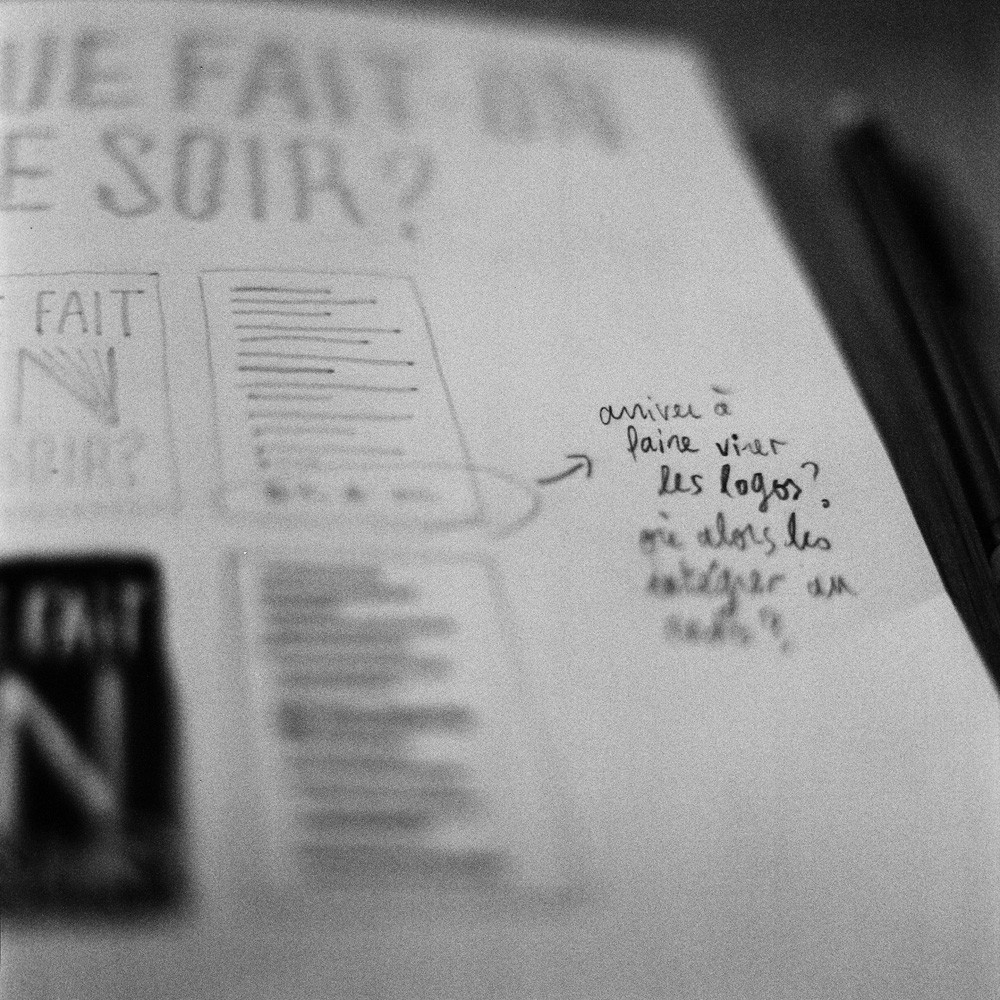 UE FAIT ON
E SOIR?
FAIT
N
OIR?
arriver à
faire virer
les logos?
où alors les
intégrer au
FAIT
N